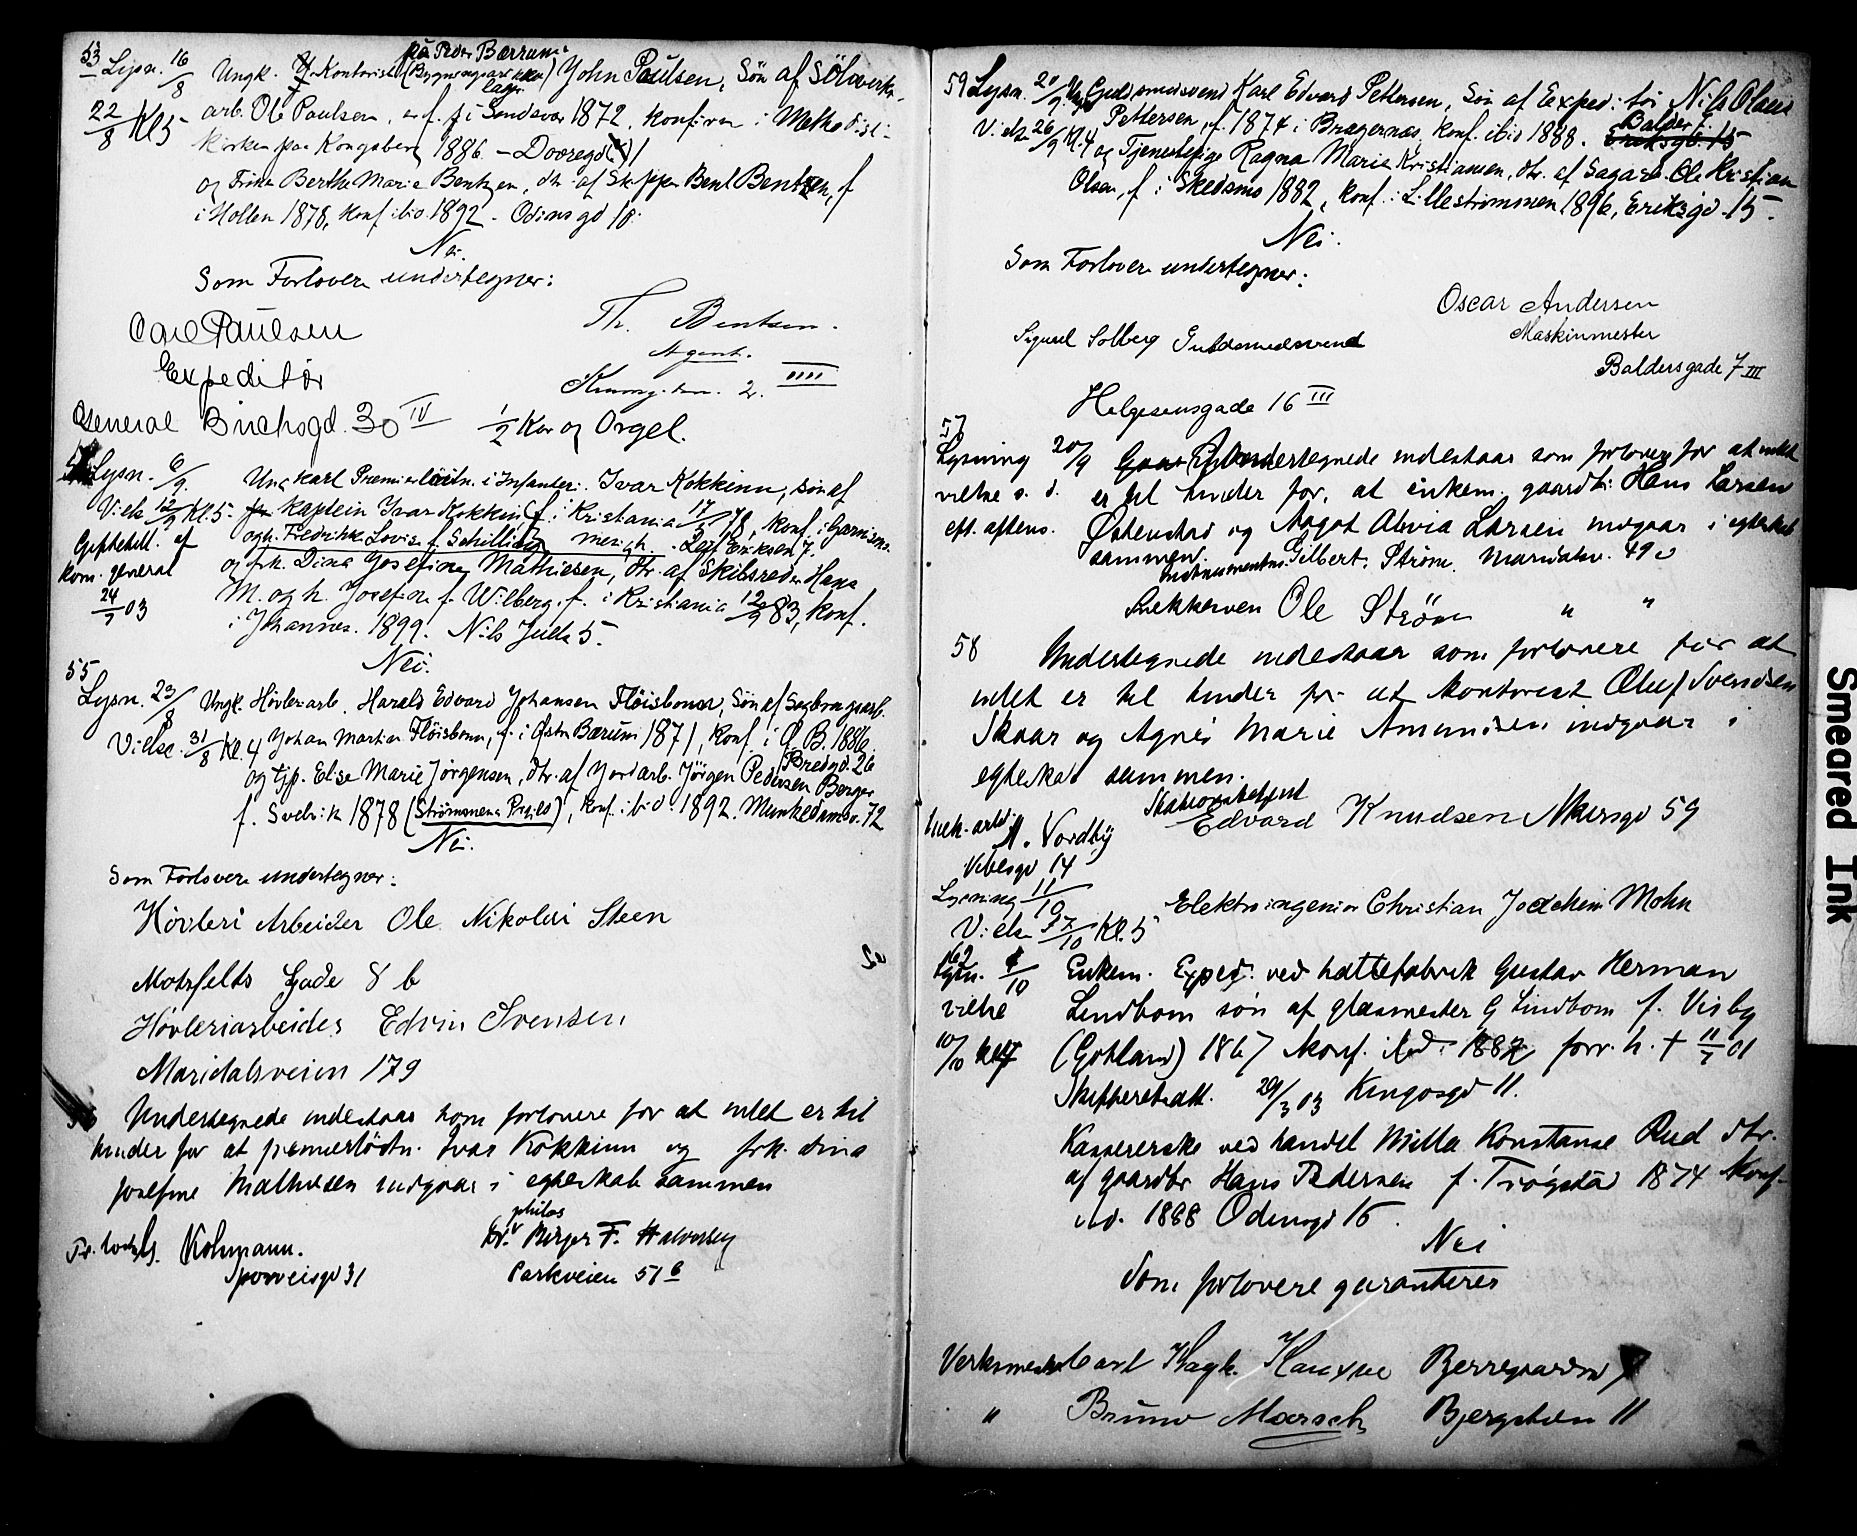 53 Lysn. 16/8 Ungk. Kontorist (paa Peder Børrums Bygningsart. lager) John Paulsen, Søn af Sölvverks-
22/8 Kl 5 arb. Ole Paulsen, f. i Sandsvær 1872, konfirm. i Methodist-
kirken paa Kongsberg 1886 – Dovregd 1
og Frøken Berthe Marie Bentzen, dtr. af Skipper Bent Bentzen, f.
i Hollen 1878, konf. ibid. 1892 – Odins gd 18.
Nei.
Som Forlovere undertegner:
Carl Paulsen
Expeditör
General Birchsgd. 30 IV
Th. Bentsen.
Agent.
2. IIII
1/2 Kor og Orgel.
Lysn. 6/9. Ungkarl Premierlöitn. i Infanteri. Ivar Kokkinn, søn af
Vielse 12/9 Kl. 5. Kaptein Ivar Kokkinn, f. i Kristiania 17/5 78, konf. i Garnisons.
Giftetill. af og h. Fredrikke Lovise f. Schilling menigh. Leif Eriksen 7.
kom. general og frk. Dina Josefine Mathiesen, dtr. af Skibsreder Hans
24/7 03 M. og h. Josefine f. Wilberg. f. i Kristiania 12/9 83, konf.
i Johannes. 1899. Nils Juels 5.
Nei.
55
Lysn. 23/8 Ungk. Høvleriarb. Harald Edvard Johansen Flöisbonn, Søn af Sagbrugsarb.
Vielse 31/8 Kl. 4 Johan Martin Flöisbonn, f. i Østre Bærum 1871, konf. i Ø. B. 1886. Bredgd. 26
og tjp. Elise Marie Jørgensen, dtr. af Jordarb. Jörgen Pedersen Berger
f. Svelvik 1878 (Strømmens Prgjeld), konf. ibid. 1892. Munkedamsv. 72
Nei.
Som Forlovere undertegner:
Hövleri Arbeider Ole Nikolai Steen
Motzfelds Gade 8 b
Hövleriarbeider Edvin Svensen
Maridalsveien 179
56 Undertegnede indestaar som forlovere for at intet er til
hinder for at premierløitn. Ivar Kokkinn og frk. Dina
Josefine Mathiesen indgaar i egteskab sammen
Kohmann.
Sporveisgd 31
Dr. philos Birger F. Halvorsen
Parkveien 51 b
59 Lysn. 20/9 Ungk. Guldsmedsvend Karl Edvard Pettersen, Søn af Expeditör Nils Olaus
Vielse 26/9 Kl. 4 Pettersen, f. 1874 i Bragernæs, konf. ibid 1888. Balders 7. Eriksgd. 15
og Tjenestepige Ragna Marie Kristiansen, dtr. af Sagarb. Ole Kristian
Olsen, f. i Skedsmo 1882, konf. i Lillestrømmen 1896, Eriksgd. 15.
Nei.
Som Forlovere undertegner:
Oscar Andersen
Maskinmester
Baldersgade 7 III
Sigurd Solberg Guldsmedsvend
Helgesensgade 16 III
57
Lysning 20/9 Undertegnede indestaar som forlovere for at intet
vielse s. d. er til hinder for, at enkem. gaardbr. Hans Larsen
eft. aftens. Østenstad og Aagot Alvia Larsen indgaar i egteskab
sammen.
Instrumentm. Gilbert. Strøm. Maridalsv. 49 c
Snekkersven Ole Strøm " "
58 Undertegnede indestaar som forlovere for at
intet er til hinder for at kontorist Oluf Svendsen
Skaar og Agnes Marie Amundsen indgaar i
egteskab sammen.
Stationsbetjent
Edvard Knudsen Akersgd 59
A. Nordby
Vibesgd 14
Lysning 11/10
Vielse 17/10 Kl. 5
Elektroingeniør Christian Joachim Mohn
Lysn. 4/10 Enkem. Exped. ved hattefabrik Gustav Herman
vielse Lindbom søn af glasmester G Lindbom f. Visby
10/10 kl 7 (Gotland) 1867 konf. ibd. 1882, forr. h. † 11/7 01
Skifteretsatt. 29/3 03 Kingosgd 11.
Kassererske ved handel Milla Konstanse Rud dtr.
af gaardbr Hans Pedersen f. Trögstad 1874 konf.
ibd. 1888 Odinsgd 15.
Nei
Som forlovere garanteres
Verksmester Carl Hagb. Hansen Bjerregaardsg 7
" Bruno Marsch Bjergstien 11
Smeared Ink